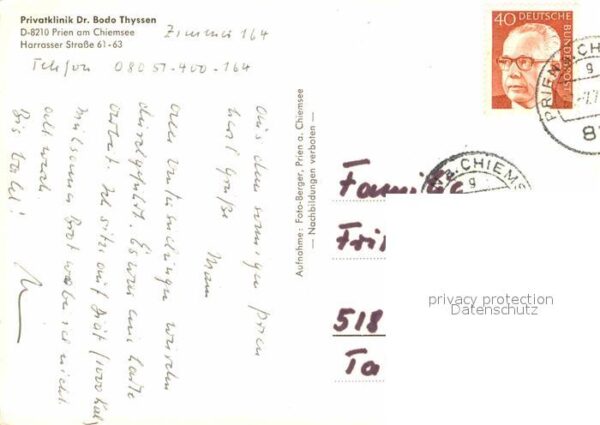 Privatklinik Dr. Bodo Thyssen
D-8210 Prien am Chiemsee
Harrasser Straße 61-63
Zimmer 164
Telefon 08051-400-164
aus dem sonnigen Prien
herzl Grüße
alle Untersuchungen wurden
durchgeführt. Es war eine harte
Arbeit. Ich sitze auf Diät (1000 Kal)
Brot wobei ich nicht
Bis bald!
Aufnahme: Foto-Berger, Prien a. Chiemsee
— Nachbildungen verboten —
40 DEUTSCHE
BUNDESPOST
PRIEN a. CHIE
g
8
a. CHIEMS
g
Familie
Fri
518
Ta
privacy protection
Datenschutz